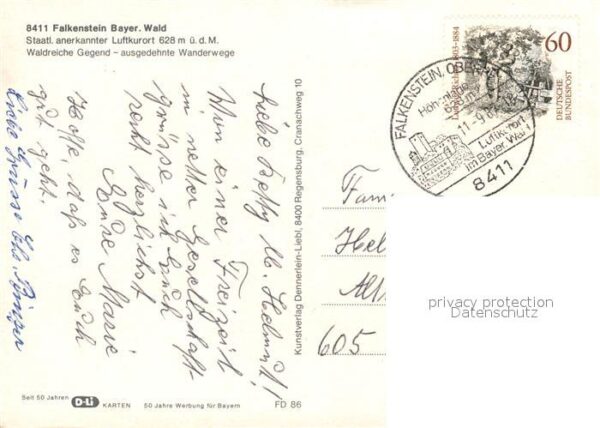 8411 Falkenstein Bayer. Wald
Staatl. anerkannter Luftkurort 628 m ü. d. M.
Waldreiche Gegend – ausgedehnte Wanderwege
Liebe Betty u. Helmut!
Von einer Freizeit
in netter Gesellschaft
grüsse ich Euch
recht herzlichst
Eure Marie
Hoffe, daß es Euch
gut geht.
Liebe Grüsse
Kunstverlag Dennerlein-Liebl, 8400 Regensburg, Cranachweg 10
-1884
60
DEUTSCHE
BUNDESPOST
FALKENSTEIN,
11.-9.
Luftkurort
im Bayer. Wald
8411
Fam
Hel
605
privacy protection
Datenschutz
Seit 50 Jahren D-Li KARTEN 50 Jahre Werbung für Bayern
FD 86